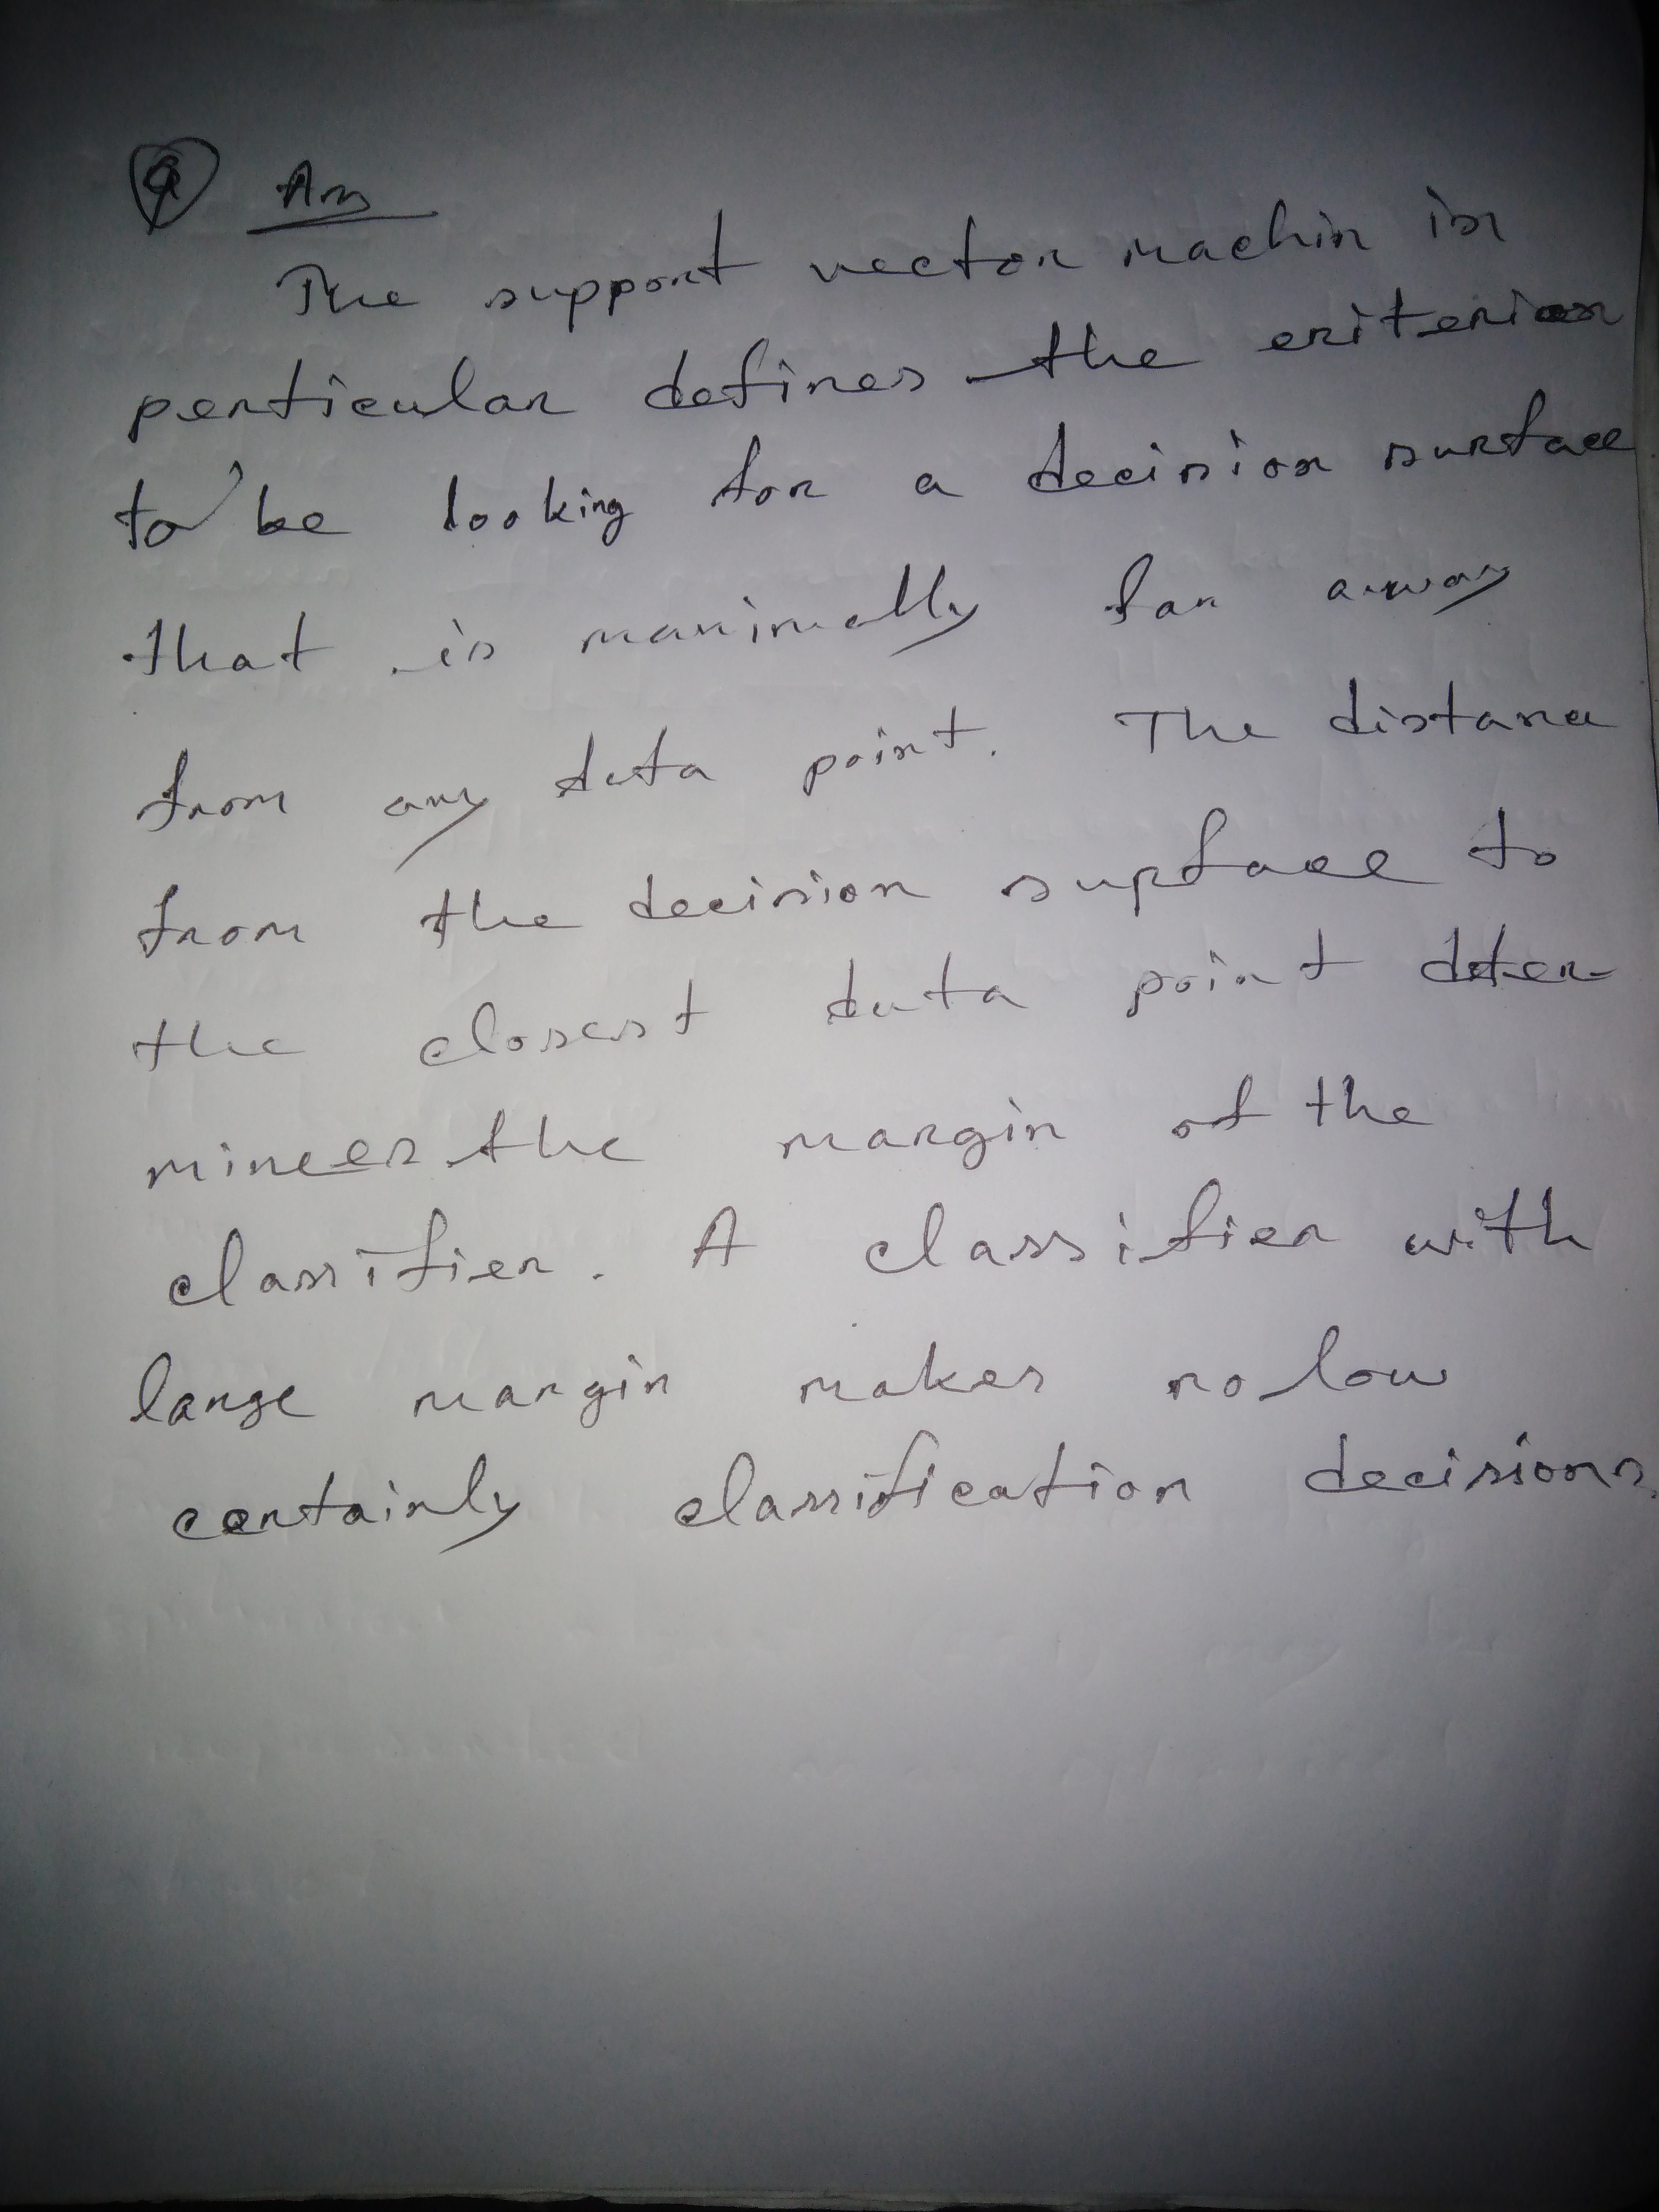 9 Ans
The support vector machin in
perticular defines the criterion
to be looking for a decision surface
that is maximally far away
from any data point. The distance
from the decision surface to
the closest data point deter-
minees the margin of the
classifier. A classifier with
large margin makes no low
certainly classification decisions